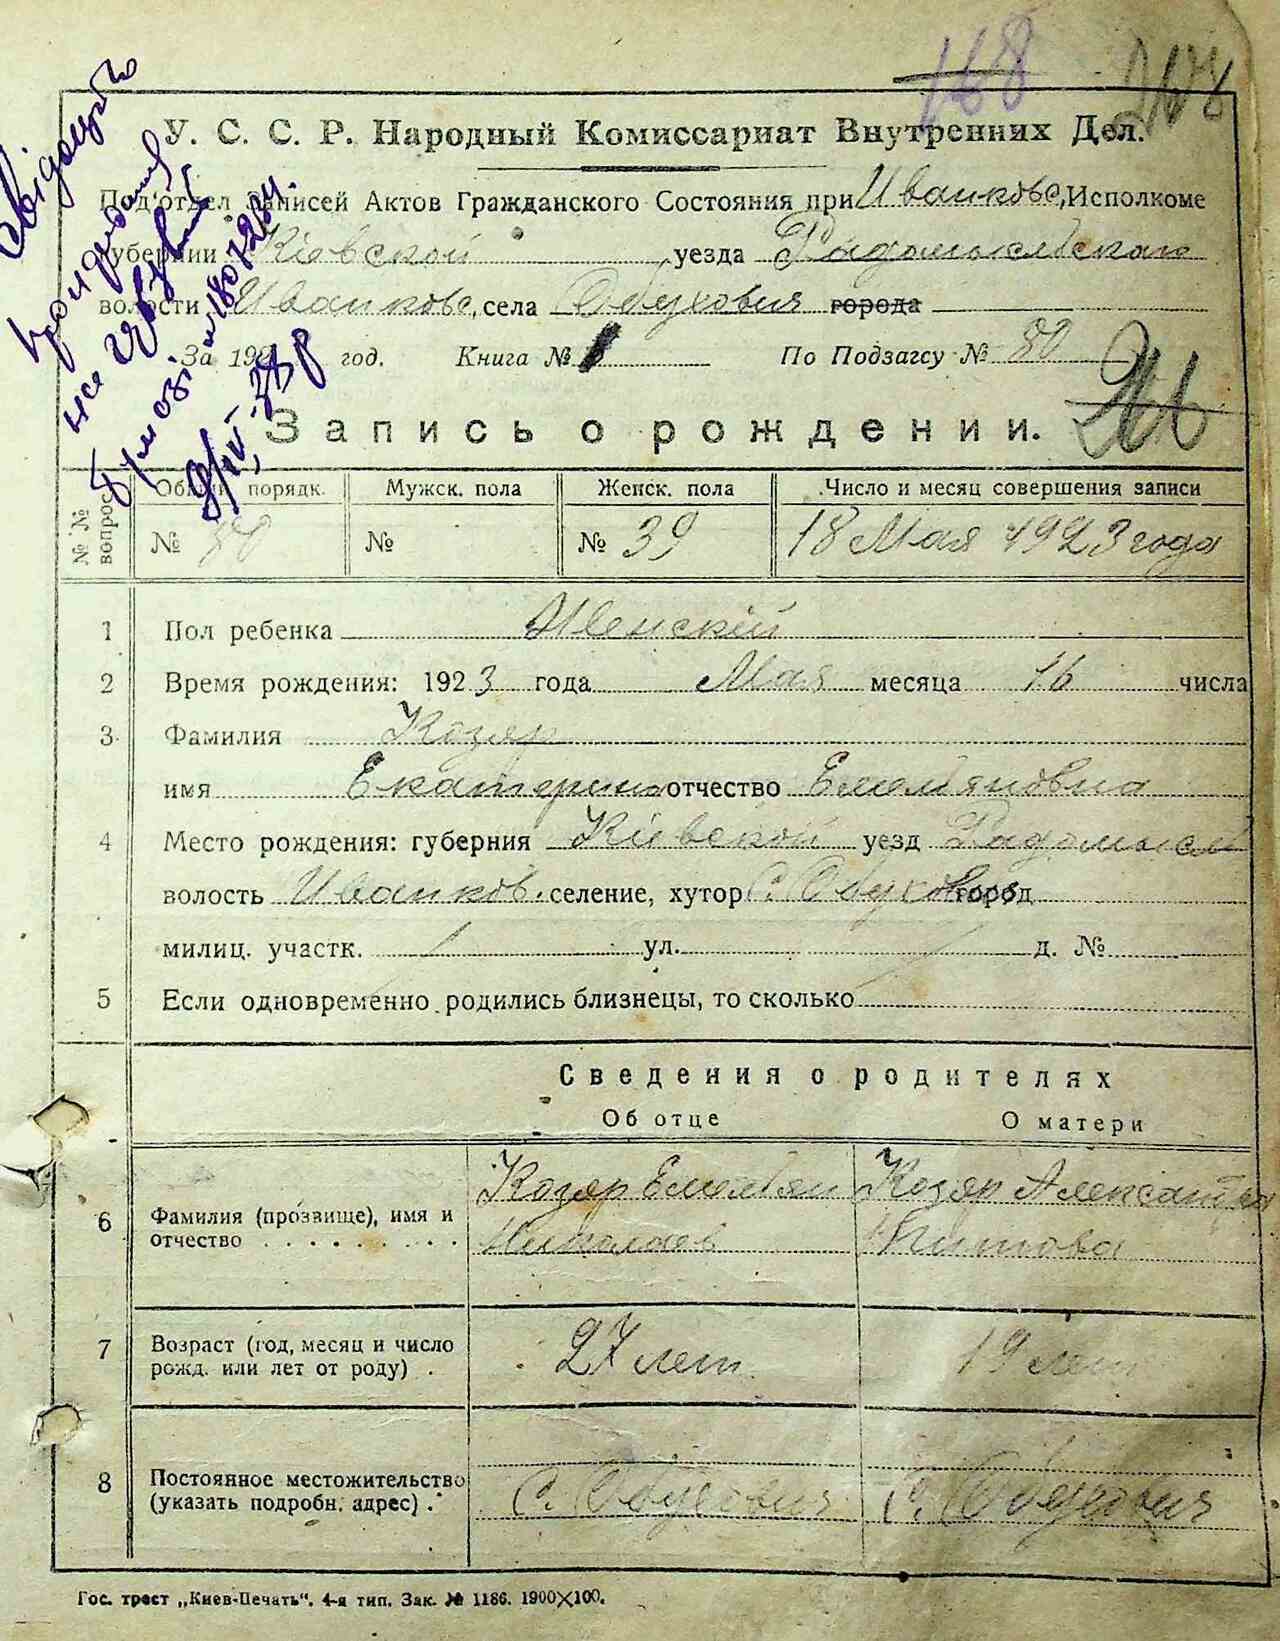 168
У. С. С. Р. Народный Комиссариат Внутренних Дел.
Под'отдел Записей Актов Гражданского Состояния при Иванковс, Исполкоме
губернии Кіевской уезда Радомысльскаго
волости Иванковс, села Обуховичи города
За 192 год. Книга № По Подзагсу № 80
Запись о рождении.
№ № вопрос.
Общий порядк. Мужск. пола Женск. пола Число и месяц совершения записи
№ 80 № № 39 18 Мая 1923 года
1 Пол ребенка Женскій
2 Время рождения: 1923 года Мая месяца 16 числа
3 Фамилия Козяр
имя Екатерина отчество Емельяновна
4 Место рождения: губерния Кіевской уезд Радомысл
волость Иванков. селение, хутор С. Обуховичи город
милиц. участк. ул. д. №
5 Если одновременно родились близнецы, то сколько
Сведения о родителях
Об отце О матери
6 Фамилия (прозвище), имя и отчество Козяр Емельян Николаев Козяр Александра Титова
7 Возраст (год, месяц и число рожд. или лет от роду) 27 лет 19 лет
8 Постоянное местожительство (указать подробн. адрес) С. Обуховичи С. Обуховичи
Гос. трест „Киев-Печать“. 4-я тип. Зак. № 1186. 1900×100.